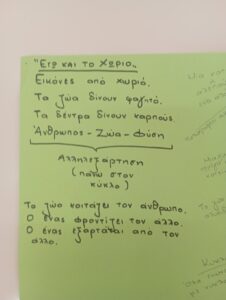 "Εγώ και το χωριό"
Εικόνες από χωριό.
Τα ζώα δίνουν φαγητό.
Τα δέντρα δίνουν καρπούς.
Άνθρωπος - Ζώα - Φύση
Αλληλεξάρτηση
(πάνω στον
κύκλο)
Το ζώο κοιτάζει τον άνθρωπο.
Ο ένας φροντίζει τον άλλο.
Ο ένας εξαρτάται από τον
άλλο.